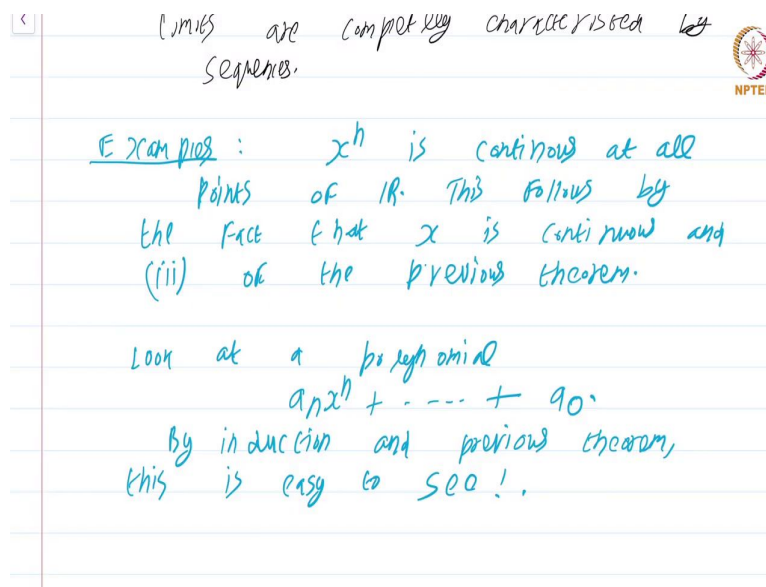 limits are completely characterised by
sequences.
NPTEL
Examples : xⁿ is continous at all
points of IR. This follows by
the fact that x is continuous and
(iii) of the previous theorem.
Look at a polynomial
aₙxⁿ + ----- + a₀.
By induction and previous theorem,
this is easy to see!.